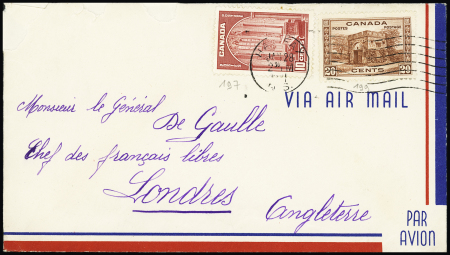 CANADA
10 CENTS
CANADA
POSTES POSTAGE
20 CENTS 20
197
VIA AIR MAIL
Monsieur le Général
De Gaulle
Chef des français libres
Londres
Angleterre
PAR
AVION